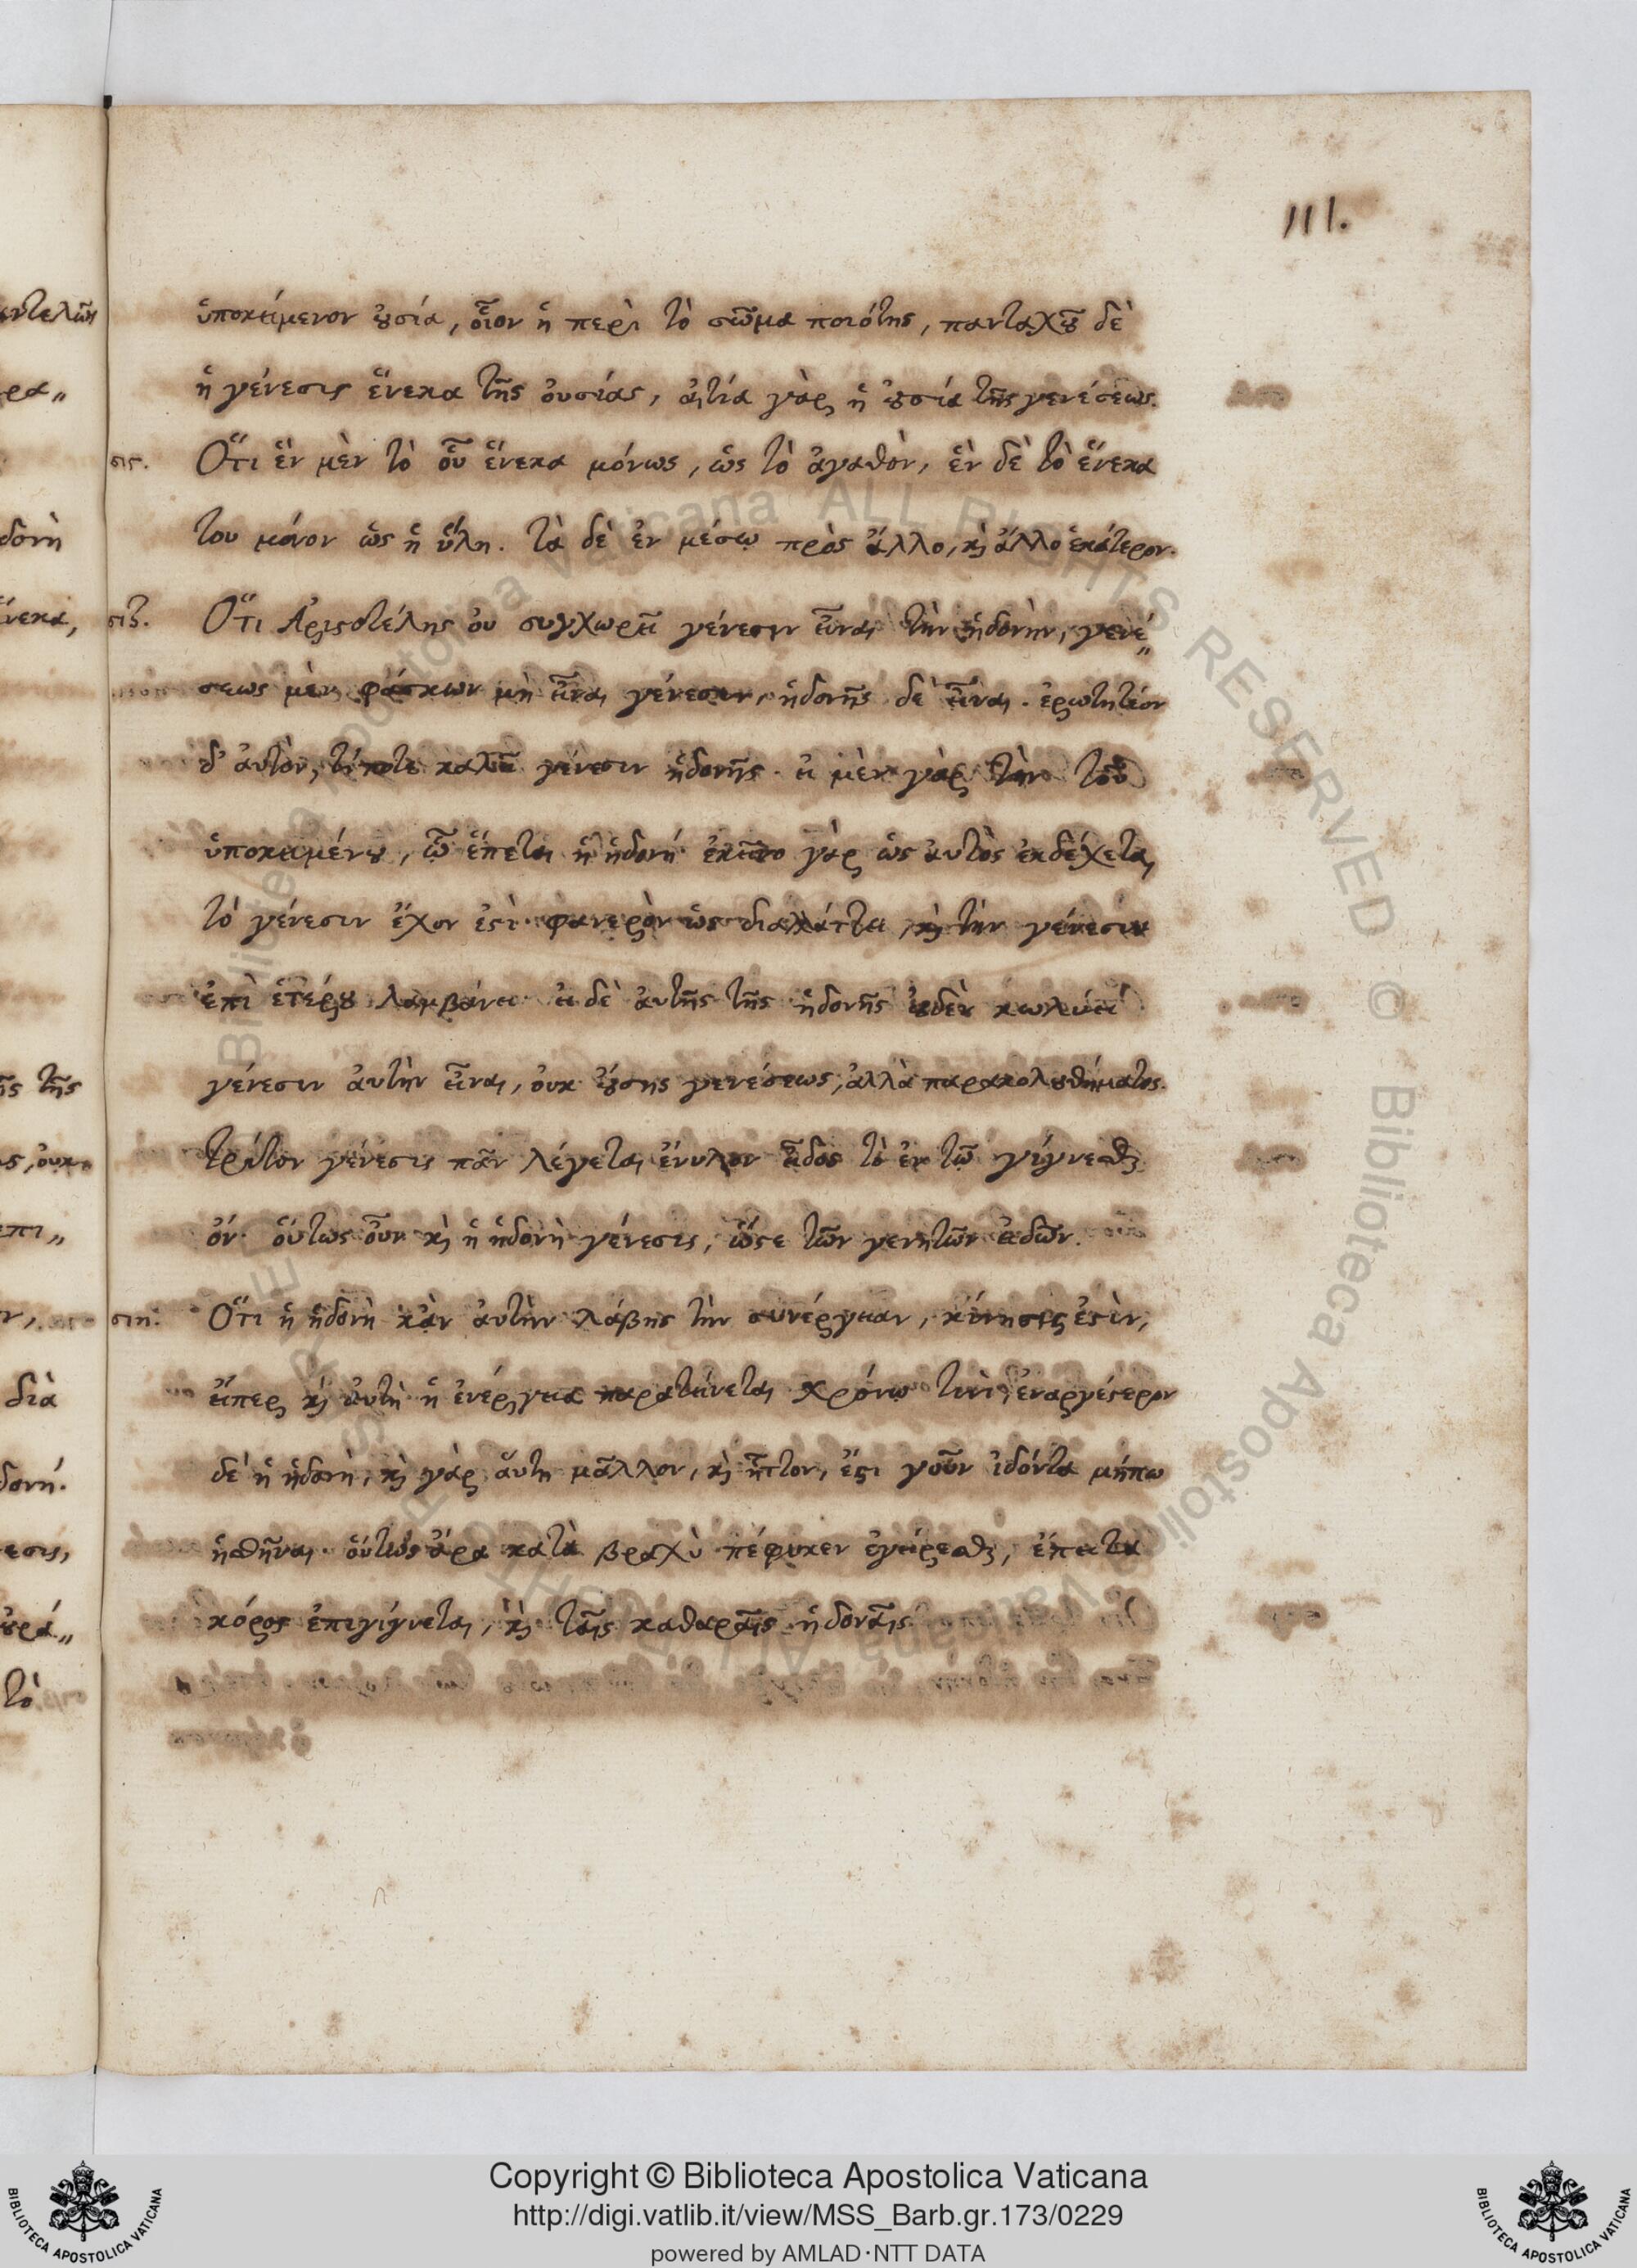 111.
ὑποκείμενον οὐσία, οἷον ἡ περὶ τὸ σῶμα ποιότης, πανταχοῦ δὲ
ἡ γένεσις ἕνεκα τῆς οὐσίας, αἰτία γὰρ ἡ οὐσία τῆς γενέσεως.
σις. Ὅτι ἓν μὲν τὸ οὗ ἕνεκα μόνως, ὡς τὸ ἀγαθὸν, ἓν δὲ τὸ ἕνεκα
του μόνον ὡς ἡ ὕλη. τὰ δὲ ἐν μέσῳ πρὸς ἄλλο, καὶ ἄλλο ἑκάτερον.
σιζ. Ὅτι Ἀριστοτέλης οὐ συγχωρεῖ γένεσιν εἶναι τὴν ἡδονὴν, γενέ〃
σεως μὲν φάσκων μὴ εἶναι γένεσιν, ἡδονῆς δὲ εἶναι. ἐρωτητέον
δ' αὐτὸν, τί ποτε καλεῖ γένεσιν ἡδονῆς. εἰ μὲν γὰρ τὴν τοῦ
ὑποκειμένου, ᾧ ἕπεται ἡ ἡδονή. ἐκεῖνο γὰρ ὡς αὐτὸς ἐκδέχεται
τὸ γένεσιν ἔχον ἐστὶ. φανερὸν ὡς διαλλάττει, καὶ τὴν γένεσιν
ἐπὶ ἑτέρου λαμβάνει. εἰ δὲ αὐτῆς τῆς ἡδονῆς οὐδὲν κωλύει
γένεσιν αὐτὴν εἶναι, οὐκ οὔσης γενέσεως, ἀλλὰ παρακολουθήματος.
τρίτον γένεσις πᾶν λέγεται ἔνυλον εἶδος τὸ ἐν τῷ γίγνεσθαι
ὄν. οὕτως οὖν καὶ ἡ ἡδονὴ γένεσις, ὥστε τῶν γενητῶν εἰδῶν.
σιη. Ὅτι ἡ ἡδονὴ κἂν αὐτὴν λάβης τὴν συνέργειαν, κίνησις ἐστὶν,
εἴπερ καὶ αὐτὴ ἡ ἐνέργεια παρατείνεται χρόνῳ τινὶ, ἐναργέστερον
δὲ ἡ ἡδονὴ, καὶ γὰρ αὕτη μᾶλλον, καὶ ἧττον, ἔστι γοῦν ἰδόντα μήπω
ἡσθῆναι. οὕτως ἄρα κατὰ βραχὺ πέφυκεν ἐγείρεσθαι, ἔπειτα
κόρος ἐπιγίγνεται, καὶ ταῖς καθαραῖς ἡδοναῖς.
Copyright © Biblioteca Apostolica Vaticana
http://digi.vatlib.it/view/MSS_Barb.gr.173/0229
powered by AMLAD·NTT DATA
BIBLIOTECA APOSTOLICA VATICANA
BIBLIOTECA APOSTOLICA VATICANA